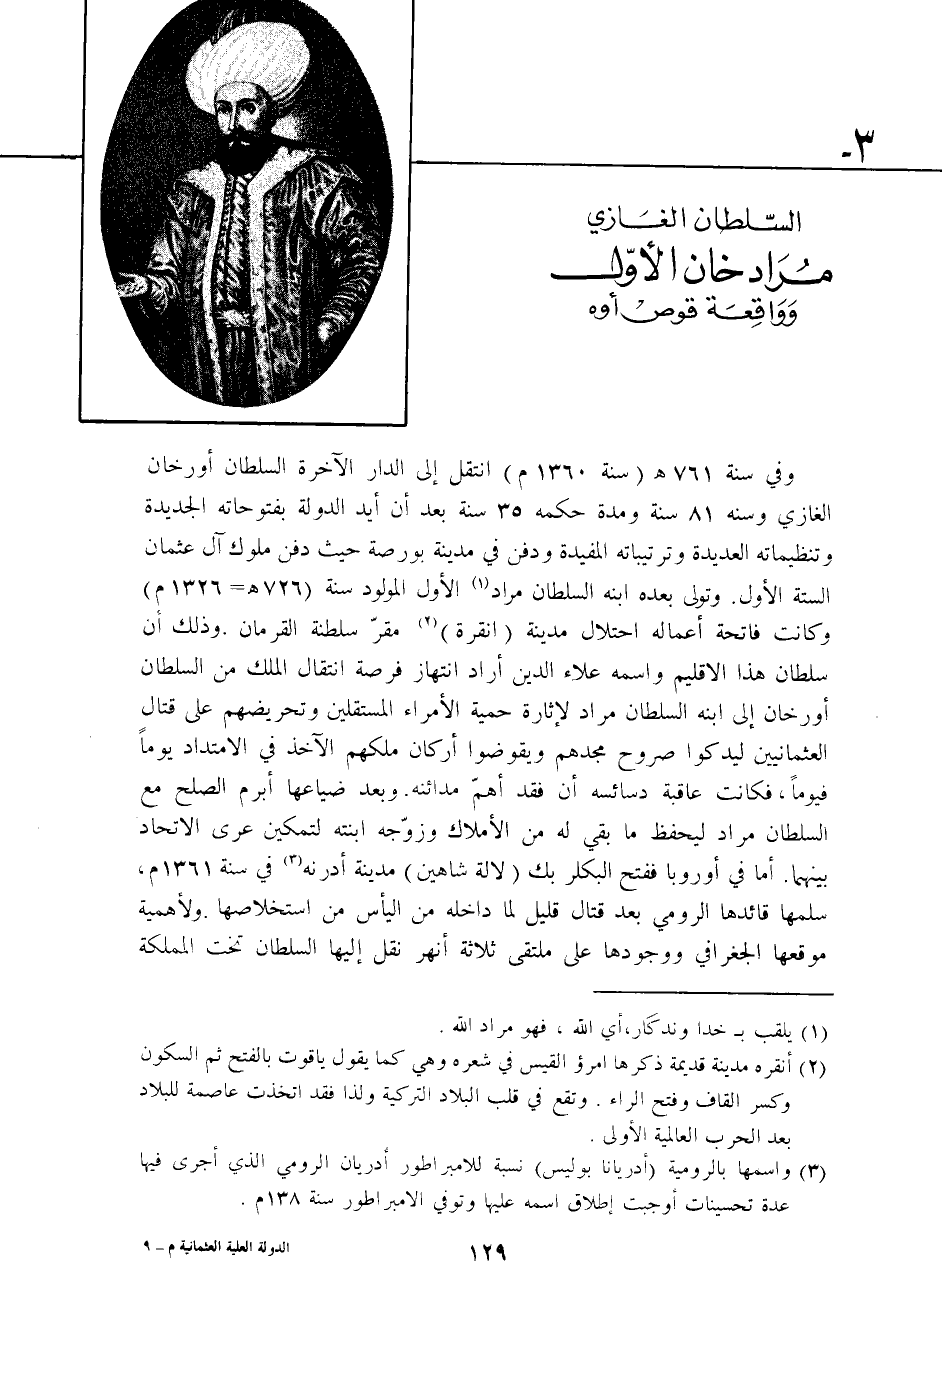 ٣-
السّلطان الغازي
مُرَاد خان الأوّل
وَوَاقِعَة قوصْ أوه
وفي سنة ٧٦١ هـ ( سنة ١٣٦٠ م ) انتقل إلى الدار الآخرة السلطان أورخان
الغازي وسنه ٨١ سنة ومدة حكمه ٣٥ سنة بعد أن أيد الدولة بفتوحاته الجديدة
وتنظيماته العديدة وترتيباته المفيدة ودفن في مدينة بورصة حيث دفن ملوك آل عثمان
الستة الأول. وتولى بعده ابنه السلطان مراد(١) الأول المولود سنة (٧٢٦هـ= ١٣٢٦ م)
وكانت فاتحة أعماله احتلال مدينة ( انقرة )(٢) مقرّ سلطنة القرمان .وذلك أن
سلطان هذا الاقليم واسمه علاء الدين أراد انتهاز فرصة انتقال الملك من السلطان
أورخان إلى ابنه السلطان مراد لإثارة حمية الأمراء المستقلين وتحريضهم على قتال
العثمانيين ليدكوا صروح مجدهم ويقوضوا أركان ملكهم الآخذ في الامتداد يوماً
فيوماً ، فكانت عاقبة دسائسه أن فقد أهمّ مدائنه. وبعد ضياعها أبرم الصلح مع
السلطان مراد ليحفظ ما بقي له من الأملاك وزوّجه ابنته لتمكين عرى الاتحاد
بينهما. أما في أوروبا ففتح البكلر بك ( لالة شاهين ) مدينة أدرنه(٣) في سنة ١٣٦١م ،
سلمها قائدها الرومي بعد قتال قليل لما داخله من اليأس من استخلاصها .ولأهمية
موقعها الجغرافي ووجودها على ملتقى ثلاثة أنهر نقل إليها السلطان تخت المملكة
(١) يلقب بـ خدا وندكَار،أي الله ، فهو مراد الله .
(٢) أنقره مدينة قديمة ذكرها امرؤ القيس في شعره وهي كما يقول ياقوت بالفتح ثم السكون
وكسر القاف وفتح الراء . وتقع في قلب البلاد التركية ولذا فقد اتخذت عاصمة للبلاد
بعد الحرب العالمية الأولى .
(٣) واسمها بالرومية (أدريانا بوليس) نسبة للامبراطور أدريان الرومي الذي أجرى فيها
عدة تحسينات أوجبت إطلاق اسمه عليها وتوفي الامبراطور سنة ١٣٨م .
١٢٩
الدولة العلية العثمانية م – ٩